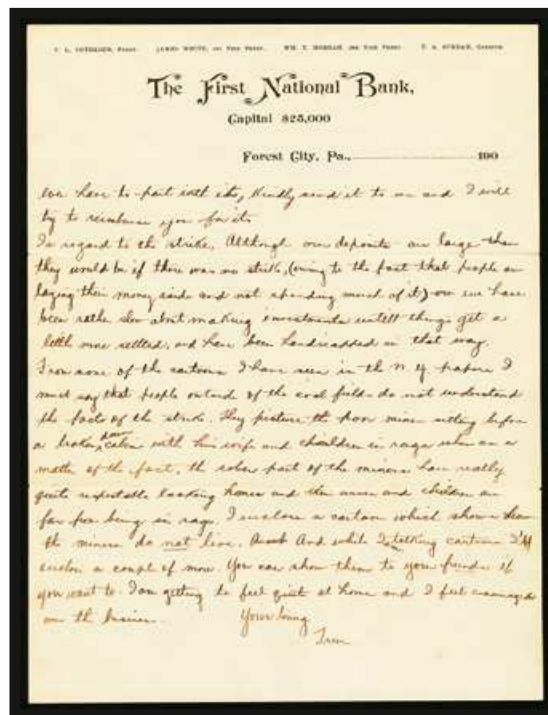 The First National Bank,
Capital $25,000
Forest City, Pa., 190
ever have to part with it, kindly send it to me and I will
try to reimburse you for it.
In regard to the strike, Although our deposits are larger than
they would be if there was no strike, (owing to the fact that people are
laying their money aside and not spending much of it) we have
been rather slow about making investments untill things get a
little more settled, and have been handicapped in that way.
From some of the cartoons I have seen in the N.Y. papers I
must say that people outside of the coal fields do not understand
the facts of the strike. They picture the poor miner sitting before
a broken down cabin with his wife and children in rags when as a
matter of the fact, the sober part of the miners have really
quite respectable looking homes and their wives and children are
far from being in rags. I enclose a cartoon which shows how
the miners do not live. And while I talking cartoons I'll
enclose a couple of more. You can show them to your friends if
you want to. I am getting to feel quite at home and I feel encouraged
over the business.
Your loving